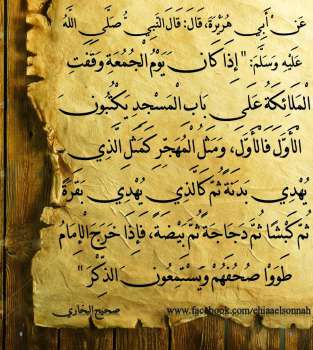 عَن أَبِي هُرَيْرَةَ، قَالَ: قَالَ النَّبِي صَلَّى اللَّهُ
عَلَيْهِ وَسَلَّمَ: "إِذَا كَانَ يَوْمُ الْجُمُعَةِ وَقَفَتِ
الْمَلَائِكَةُ عَلَى بَابِ الْمَسْجِدِ يَكْتُبُونَ
الْأَوَّلَ فَالْأَوَّلَ، وَمَثَلُ الْمُهَجِّرِ كَمَثَلِ الَّذِي
يُهْدِي بَدَنَةً ثُمَّ كَالَّذِي يُهْدِي بَقَرَةً
ثُمَّ كَبْشًا ثُمَّ دَجَاجَةً ثُمَّ بَيْضَةً، فَإِذَا خَرَجَ الْإِمَامُ
طَوَوْا صُحُفَهُمْ وَيَسْتَمِعُونَ الذِّكْرَ"
صحيح البخاري
www.facebook.com/chiaaelsonnah